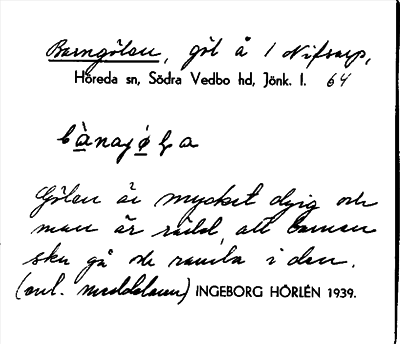 Barngölen, göl å 1 Nifsarp,
Höreda sn, Södra Vedbo hd, Jönk. l. 64
bànajǿla
Gölen är mycket dyig och
man är rädd att barnen
ska gå och ramla i den.
(enl. meddelaren) INGEBORG HÖRLÉN 1939.